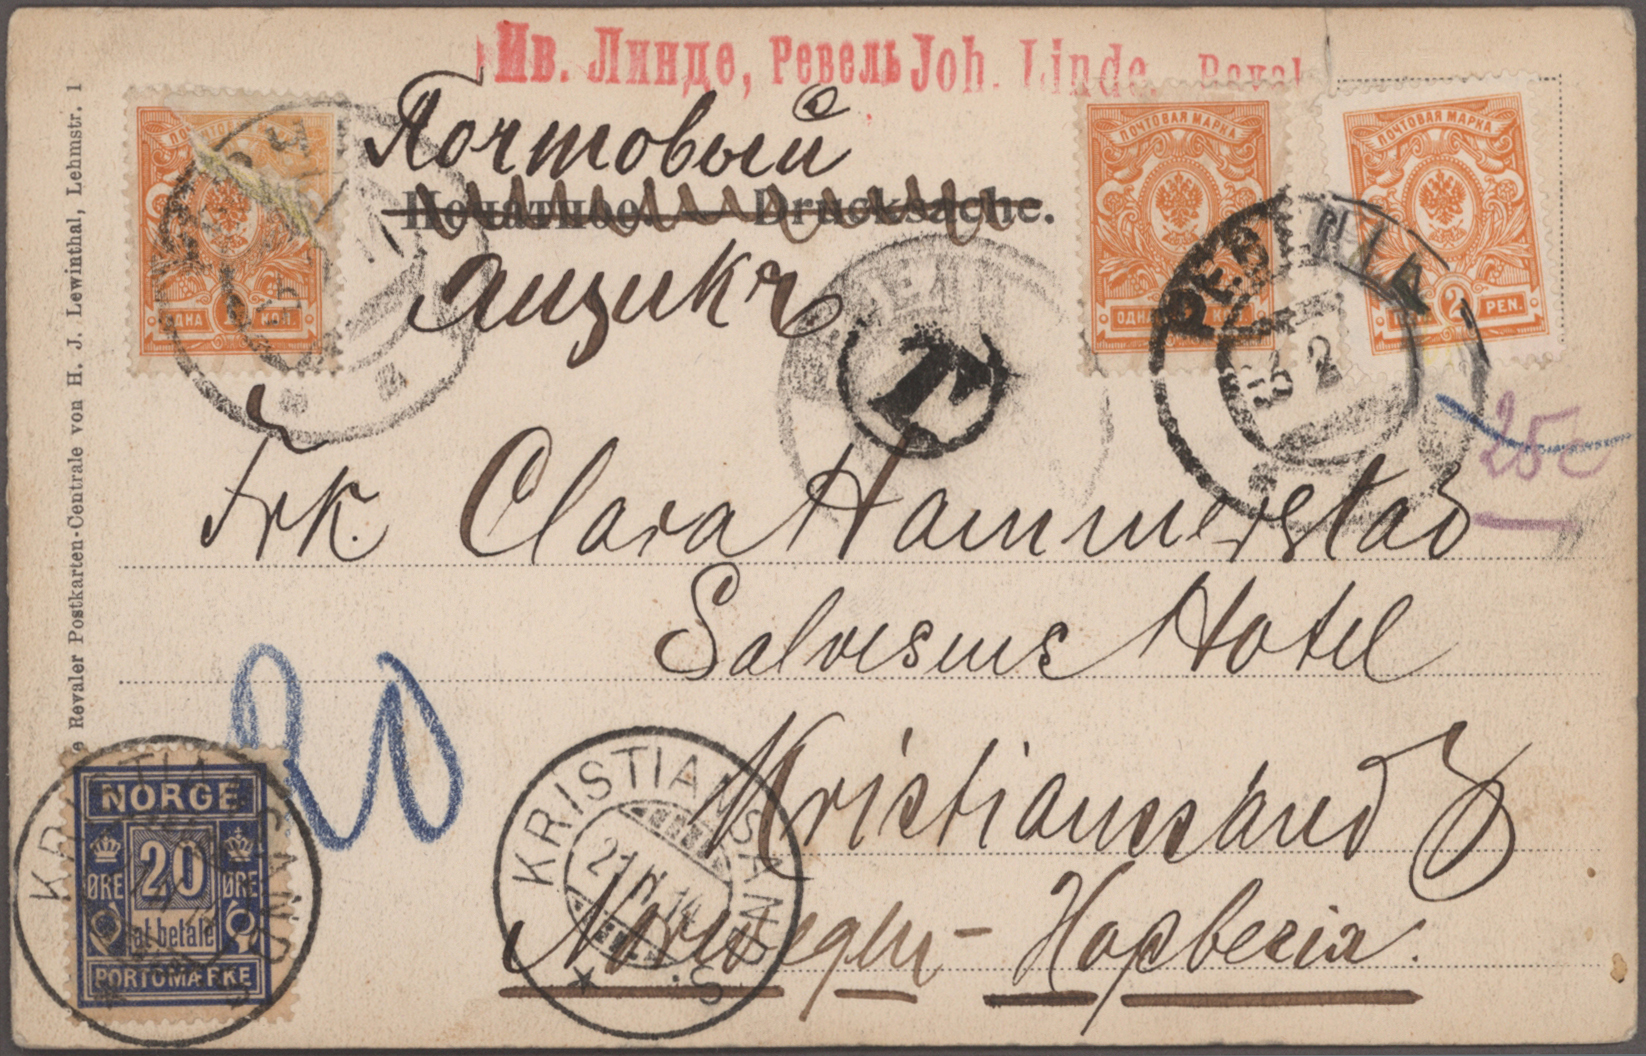 Ив. Линде, Ревель Joh. Linde, Reval
Почтовый
Печатное. — Drucksache.
ящикъ
ПОЧТОВАЯ МАРКА
ОДНА 1 КОП.
ПОЧТОВАЯ МАРКА
ОДНА КОП.
ПОЧТОВАЯ МАРКА
2 PEN.
T
25c
Frk. Clara Hammerstad
Salvesens Hotel
Kristianssand S
Norwegen - Норвегія.
20
NORGE
20
ØRE ØRE
at betale
PORTOMÆRKE
KRISTIANSAND S.
KRISTIANSAND S.
21 IV 14
Revaler Postkarten-Centrale von H. J. Lewinthal, Lehmstr. 1